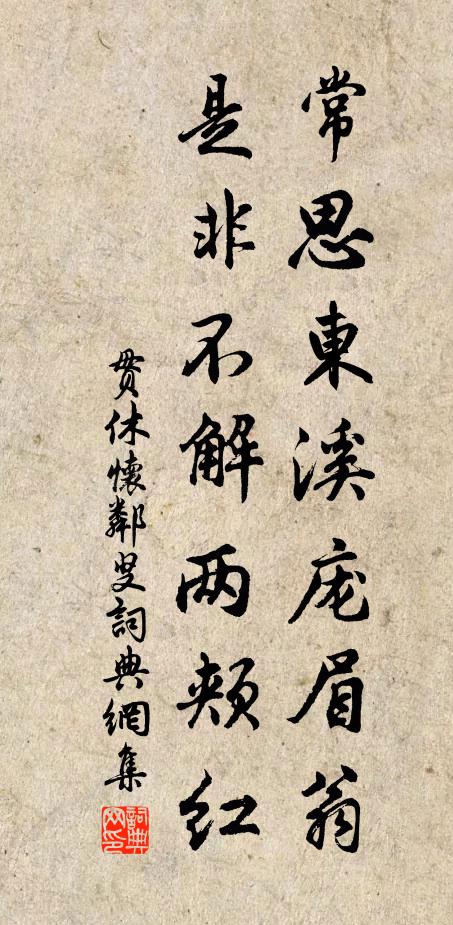 常思東溪庞眉翁
是非不解两颊红
贯休懷鄰叟詞典網集
詞典网印